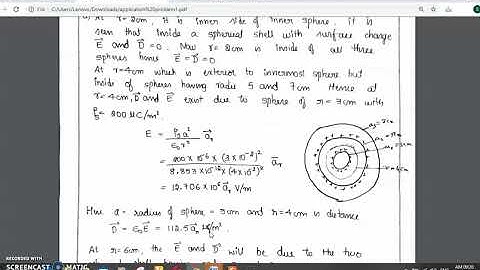 C:/Users/Lenovo/Downloads/application%20problem1.pdf
a) At r=2cm, it is inner side of inner sphere, it is
seen that inside a spherical shell with surface charge
E and D=0. Now r=2cm is inside of all three
spheres hence E=D=0
At r=4cm which is exterior to innermost sphere but
inside of spheres having radii 5 and 7cm Hence at
r=4cm, D and E exist due to sphere of r= 3cm with
ρs= 200 μC/m²
E = ρs a² / ε0 r² ar
= 200×10⁻⁶ × (3×10⁻²)² / 8.854×10⁻¹² × (4×10⁻²)² ar
= 12.706 × 10⁶ ar V/m
Here a= radius of sphere = 3cm and r=4cm is distance
D = ε0E = 112.5 ar μC/m².
At r=6cm, the E and D will be due to the two
RECORDED WITH
SCREENCAST MATIC